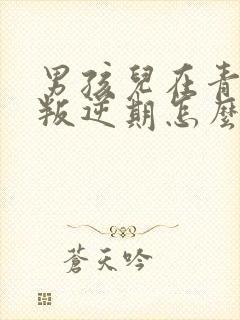 男孩兒在青
叛逆期怎麼
蒼天吟